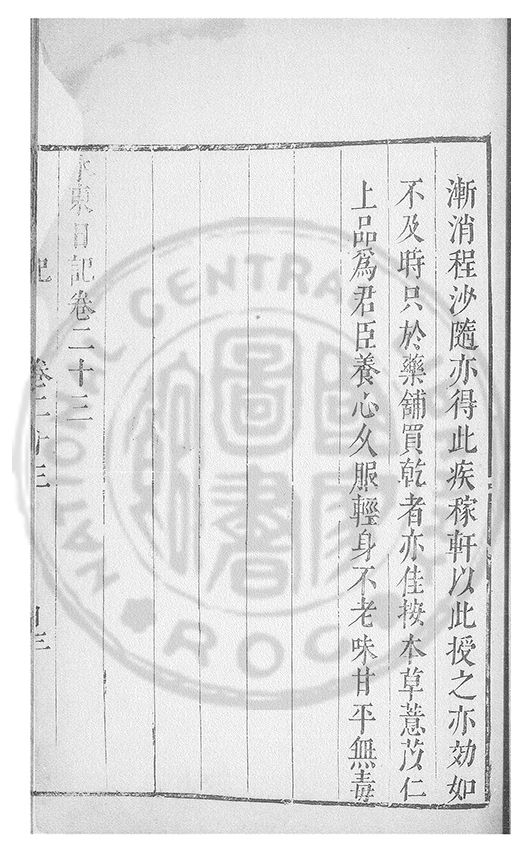 漸消程沙隨亦得此疾稼軒以此授之亦効如
不及時只於藥舖買乾者亦佳按本草薏苡仁
上品爲君臣養心久服輕身不老味甘平無毒
水東日記卷二十三
記 卷二十三
NATIONAL CENTRAL
ROC